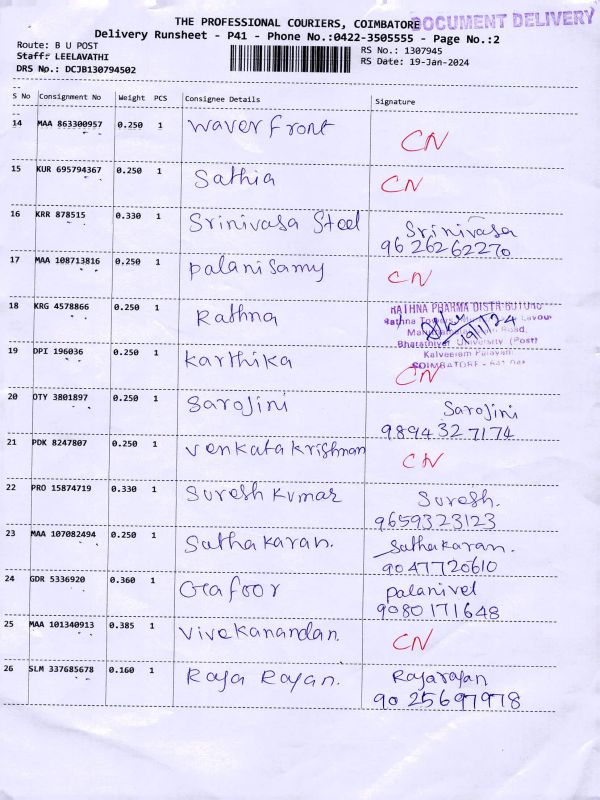 THE PROFESSIONAL COURIERS, COIMBATORE
DOCUMENT DELIVERY
Delivery Runsheet - P41 - Phone No.:0422-3505555 - Page No.:2
Route: B U POST
RS No.: 1307945
Staff: LEELAVATHI
RS Date: 19-Jan-2024
DRS No.: DCJB130794502
S No Consignment No Weight PCS Consignee Details Signature
14 MAA 863300957 0.250 1 Waver Front CN
15 KUR 695794367 0.250 1 Sathia CN
16 KRR 878515 0.330 1 Srinivasa Steel Srinivasa
9626262270
17 MAA 108713816 0.250 1 Palanisamy CN
18 KRG 4578866 0.250 1 Rathna RATHNA PHARMA DISTRIBUTORS
Rathna Road,
19/1/24
Bharathiyar University (Post)
Kalveeram Palayam,
COIMBATORE
19 DPI 196036 0.250 1 Karthika CN
20 OTY 3801897 0.250 1 Sarojini Sarojini
9894327174
21 PDK 8247807 0.250 1 Venkatakrishnan CN
22 PRO 15874719 0.330 1 Suresh Kumar Suresh.
9659323123
23 MAA 107082494 0.250 1 Sathakaran. Sathakaran.
9047720610
24 GDR 5336920 0.360 1 Gafoor Palanivel
9080171648
25 MAA 101340913 0.385 1 Vivekanandan. CN
26 SLM 337685678 0.160 1 Raja Rajan. Rajarajan
9025697978